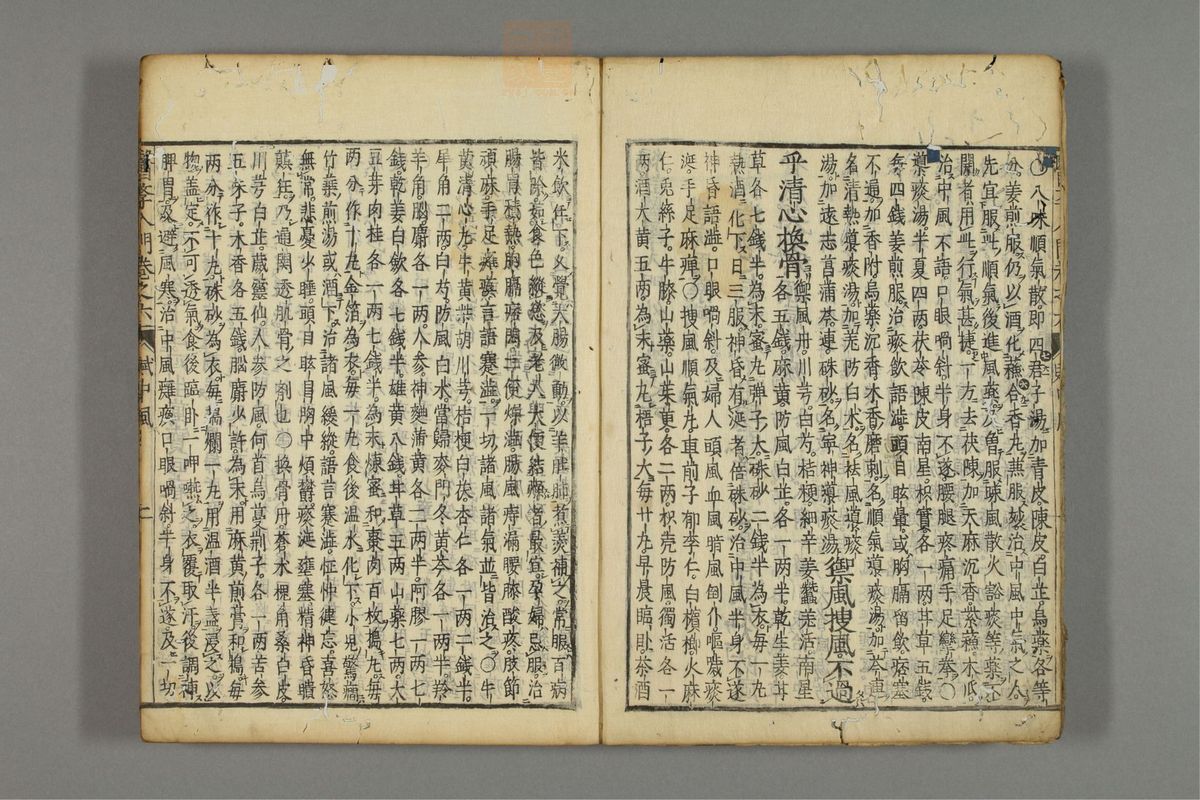 〇八味順氣散即四君子湯加青皮陳皮白芷烏藥各等
分姜煎服仍以酒化蘓合香丸蒸服故治中風中氣之人
先宜服此順氣後進風藥八曾服踈風散火谿痰等藥不
開者用此行氣甚捷一方去茯陳加天麻沉香紫蘓木瓜
治中風不語口眼喎斜半身不遂腰腿疼痛手足攣拳〇
導痰湯半夏四两茯苓陳皮南星枳實各一两甘草五錢
每四錢姜煎服治痰飲語澁頭目眩暈或胸膈留飲痞塞
不通加香附烏藥沉香木香磨刺名順氣導痰湯加芩連
名清熱導痰湯加羌防白术名祛風導痰
湯加遠志菖蒲芩連硃砂名寧神導痰湯禦風搜風不過
乎清心換骨禦風丹川芎白芍桔梗細辛姜蠶羌活南星
各五錢麻黄防風白芷各一两半乾生姜甘
草各七錢半為末蜜丸弹子大硃砂二錢半為衣每一丸
熱酒化下日三服神昏有涎者倍硃砂治中風半身不遂
神昏語澁口眼喎斜及婦人頭風血風暗風倒仆嘔噦痰
涎手足麻痺〇搜風順氣丸車前子郁李仁白檳榔火麻
仁兎絲子牛膝山藥山茱萸各二两枳壳防風獨活各一
两酒大黄五两為末蜜丸梧子大每廿丸早晨臨卧茶酒
米飲任下久覺大腸微動以羊肚肺煮羮補之常服百病
皆除如食色縱慾及老人大便結燥者最宜孕婦忌服治
腸胃積熱胸膈痞悶二便燥澁腸風痔漏腰膝酸疼肢節
頑麻手足癱瘓言語蹇澁一切諸風諸氣並皆治之〇牛
黄清心丸牛黄柴胡川芎桔梗白茯杏仁各一两二錢半
犀角二两白芍防風白术當歸麥門冬黄芩各一两半羚
羊角腦麝各一两人參神麯蒲黄各二两半阿膠一两七
錢乾姜白斂各七錢半雄黄八錢甘草五两山藥七两大
豆芽肉桂各一两七錢半為末煉蜜和棗肉百枚搗丸每
两分作十丸金箔為衣每一丸食後温水化下小児驚癇
竹葉煎湯或酒下治諸風緩縱語言蹇澁怔忡健忘喜怒
無常悲憂少睡頭目眩冒胸中煩欝痰涎壅塞精神昏憒
顛狂乃通関透肌骨之劑也〇換骨丹蒼术槐角桑白皮
川芎白芷葳靈仙人參防風何首烏蔓荆子各一两苦參
五味子木香各五錢腦麝少許為末用麻黄煎膏和搗每
两分作十丸硃砂為衣每搗爛一丸用温酒半盞浸之以
物盖定不可透氣食後臨卧一呷嚥之衣覆取汗後調補
脾胃及避風寒治中風癱瘓口眼喎斜半身不遂及一切